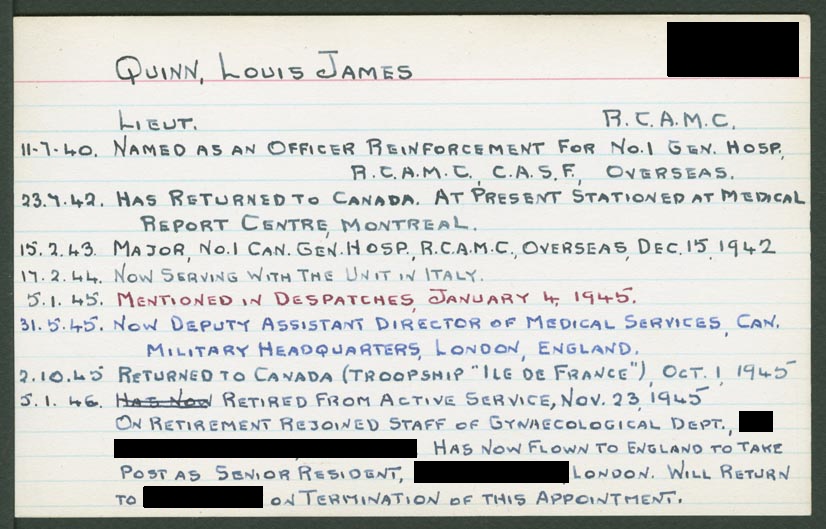 Quinn, Louis James
Lieut. R.C.A.M.C.
11-7-40. Named as an Officer Reinforcement for No.1 Gen. Hosp.,
R.C.A.M.C., C.A.S.F., Overseas.
23.9.42. Has Returned to Canada. At Present Stationed at Medical
Report Centre, Montreal.
15.2.43. Major, No.1 Can. Gen. Hosp., R.C.A.M.C., Overseas, Dec. 15, 1942
17.2.44. Now Serving With The Unit in Italy.
5.1.45. Mentioned in Despatches, January 4, 1945.
31.5.45. Now Deputy Assistant Director of Medical Services, Can.
Military Headquarters, London, England.
2.10.45 Returned to Canada (Troopship "Ile de France"), Oct. 1, 1945
5.1.46. Has Now Retired from Active Service, Nov. 23, 1945
On Retirement Rejoined Staff of Gynaecological Dept.,
Has Now Flown to England to Take
Post as Senior Resident, London. Will Return
to on Termination of this Appointment.